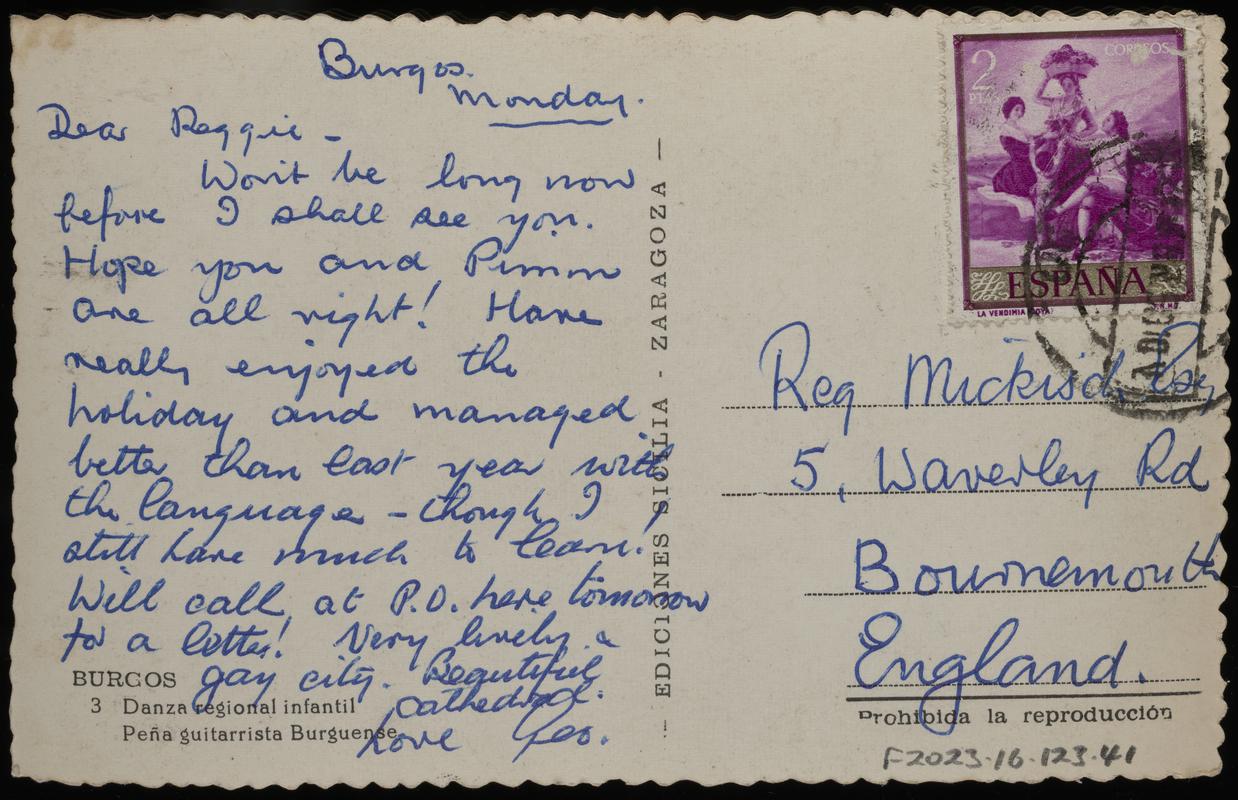 Burgos.
Monday.
Dear Reggie –
Won't be long now
before I shall see you.
Hope you and Pimm
are all right! Have
really enjoyed the
holiday and managed
better than last year with
the language – though I
still have much to learn.
Will call at P.O. here tomorrow
for a letter! Very lively &
gay city. Beautiful
cathedral.
Love Geo.
BURGOS
3 Danza regional infantil
Peña guitarrista Burguense
— EDICIONES SICILIA - ZARAGOZA —
2
PTAS
CORREOS
ESPAÑA
LA VENDIMIA (GOYA)
Reg Mickisch Esq
5, Waverley Rd
Bournemouth
England.
Prohibida la reproducción
F2023.16.123.41